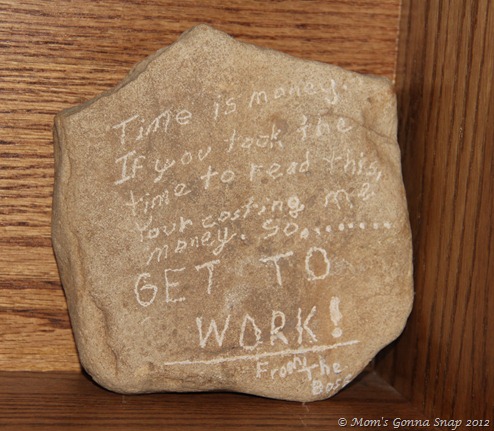 Time is money.
If you took the
time to read this,
Your costing me
money. So..........
GET TO
WORK!
From the
Boss
© Mom's Gonna Snap 2012